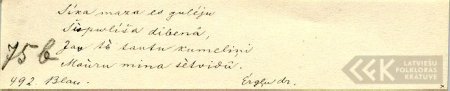 Sīka maza es gulēju
Šūpulīša dibenā,
Jau tā tautu kumeliņi
Mauru mina sētvidū.
75 b
492. Blau. Ērgļu dr.
LFK LATVIEŠU
FOLKLORAS
KRĀTUVE